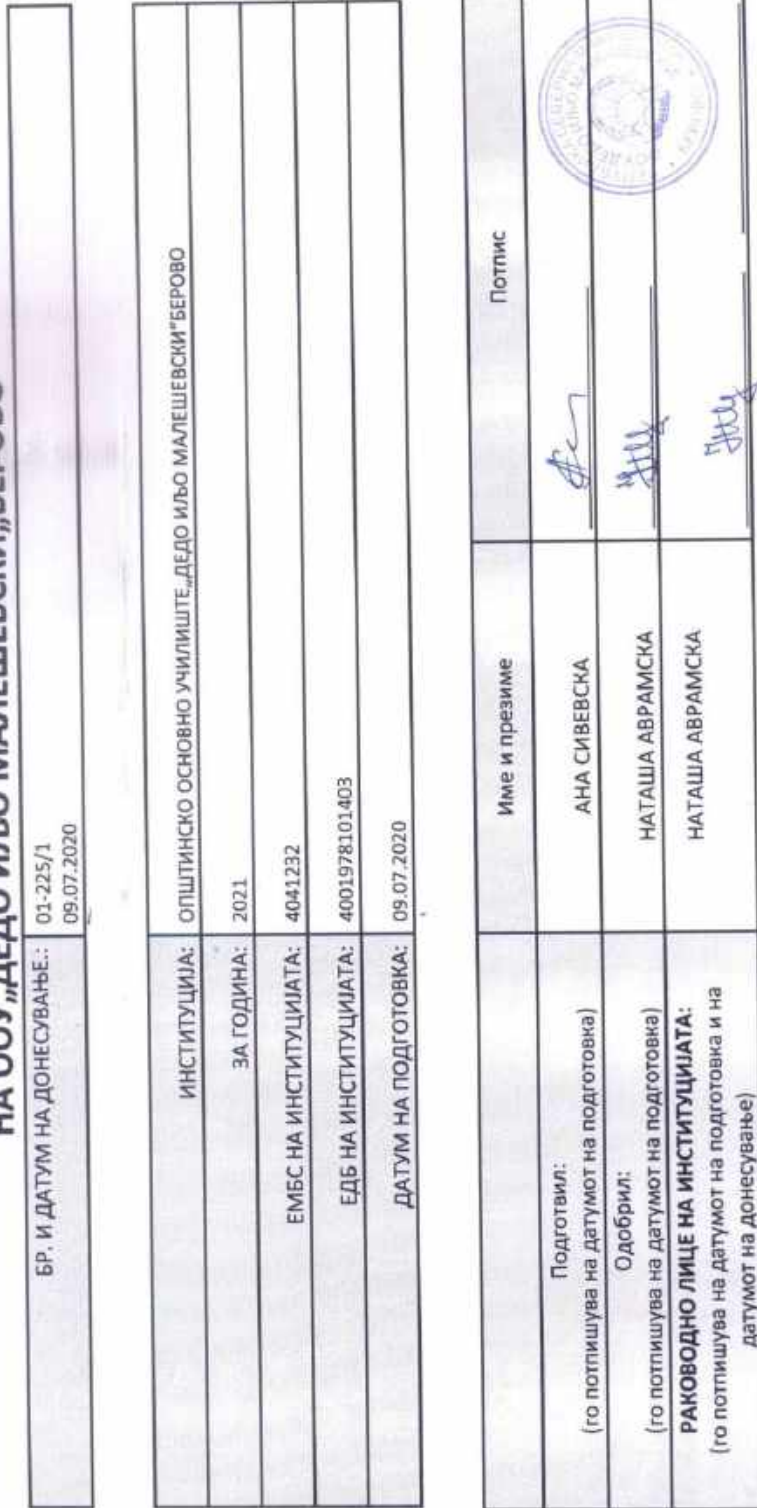 НА ООУ„ДЕДО ИЉО МАЛЕШЕВСКИ„БЕРОВО
БР. И ДАТУМ НА ДОНЕСУВАЊЕ.: 01-225/1
09.07.2020
ИНСТИТУЦИЈА: ОПШТИНСКО ОСНОВНО УЧИЛИШТЕ„ДЕДО ИЉО МАЛЕШЕВСКИ"БЕРОВО
ЗА ГОДИНА: 2021
ЕМБС НА ИНСТИТУЦИЈАТА: 4041232
ЕДБ НА ИНСТИТУЦИЈАТА: 4001978101403
ДАТУМ НА ПОДГОТОВКА: 09.07.2020
Име и презиме Потпис
Подготвил:
(го потпишува на датумот на подготовка) АНА СИВЕВСКА
Одобрил:
(го потпишува на датумот на подготовка) НАТАША АВРАМСКА
РАКОВОДНО ЛИЦЕ НА ИНСТИТУЦИЈАТА: НАТАША АВРАМСКА
(го потпишува на датумот на подготовка и на
датумот на донесување)